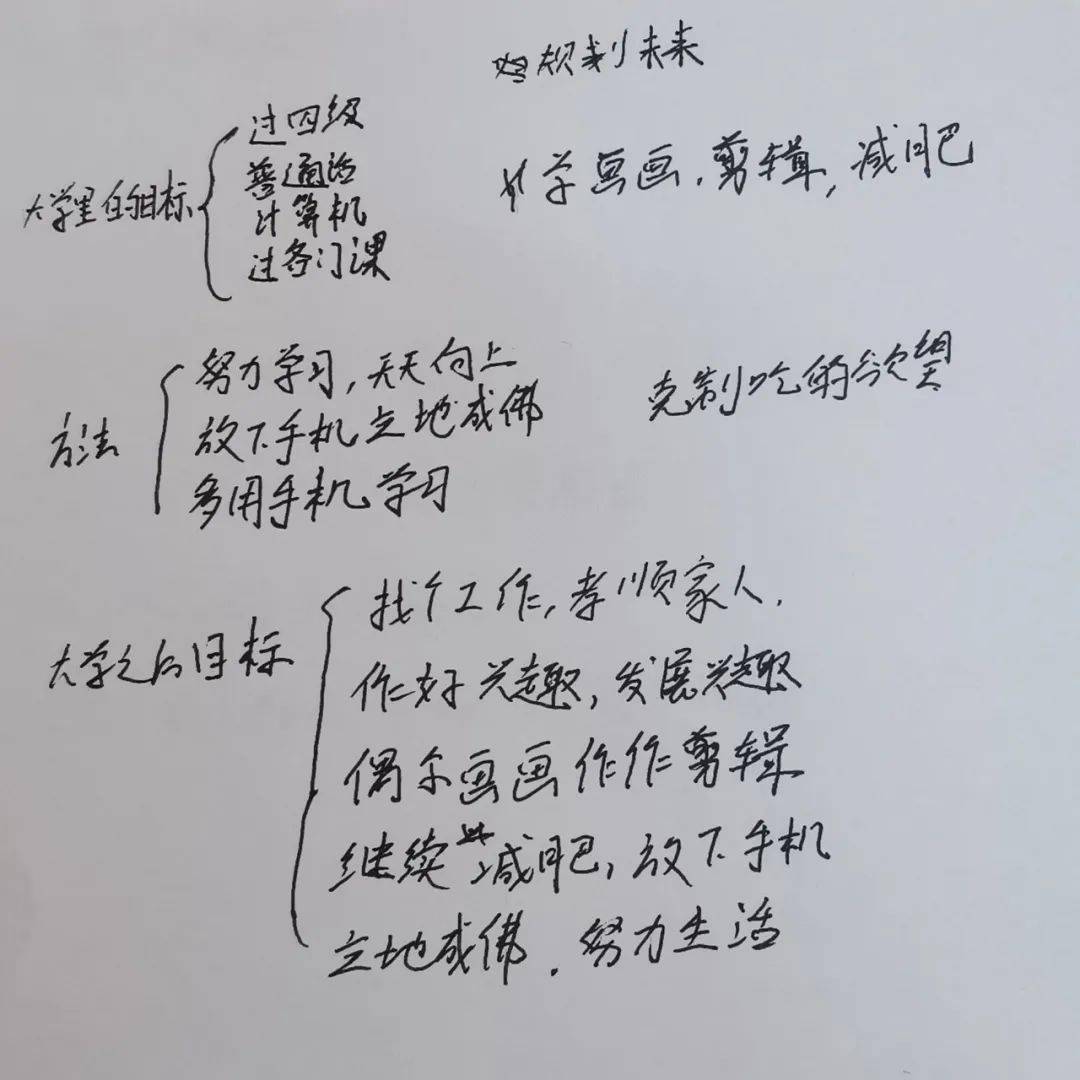 规划未来
大学里的目标
过四级
普通话
计算机
过各门课
学画画,剪辑,减肥
方法
努力学习,天天向上
放下手机立地成佛
多用手机学习
克制吃的欲望
大学之后目标
找个工作,孝顺家人.
作好兴趣,发展兴趣
偶尔画画作作剪辑
继续减肥,放下手机
立地成佛.努力生活